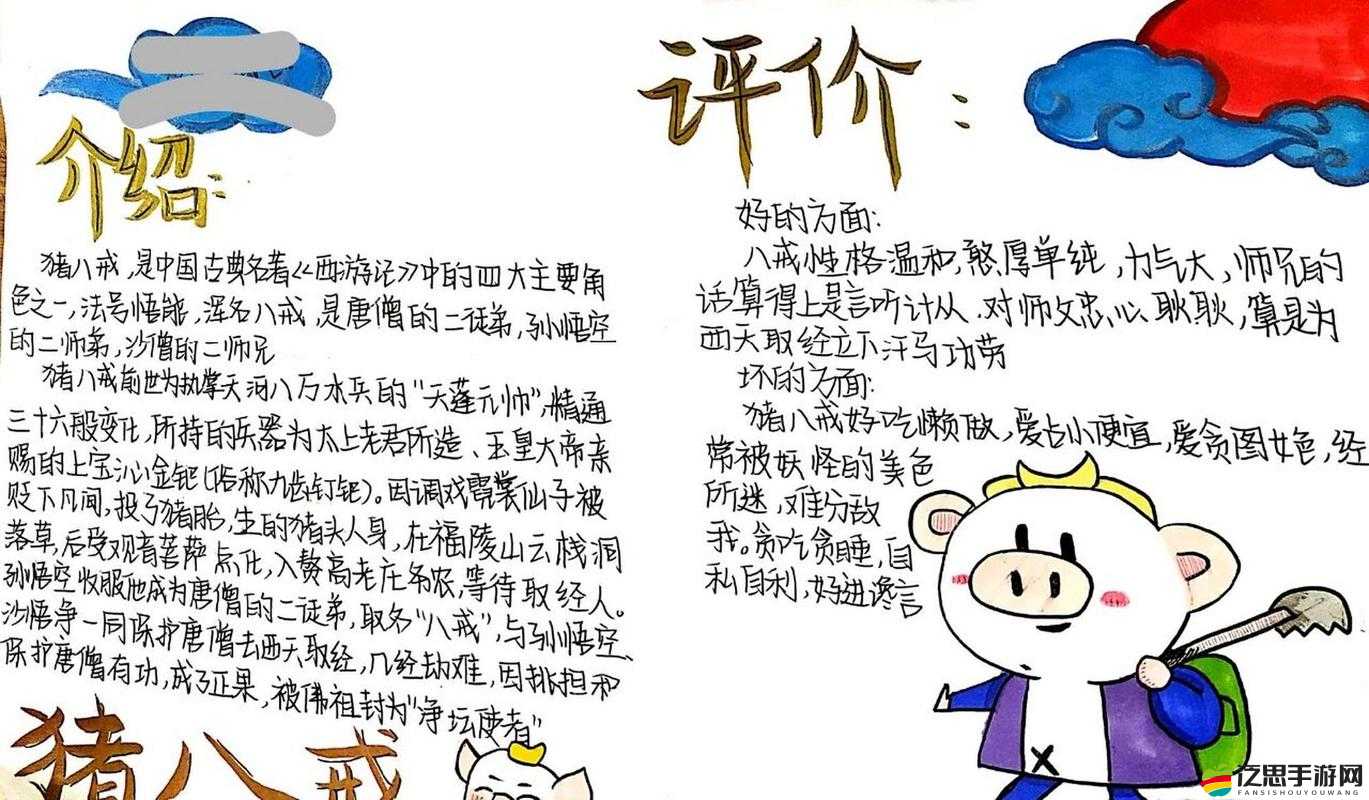 介绍:
猪八戒,是中国古典名著《西游记》中的四大主要角
色之一,法号悟能,浑名八戒,是唐僧的二徒弟,孙悟空
的二师弟,沙僧的二师兄
猪八戒前世为执掌天河八万水兵的“天蓬元帅”,精通
三十六般变化,所持的兵器为太上老君所造、玉皇大帝亲
赐的上宝沁金钯(俗称九齿钉钯)。因调戏霓裳仙子被
贬下凡间,投了猪胎,生的猪头人身,在福陵山云栈洞
落草,后受观音菩萨点化,入赘高老庄务农,等待取经人。
孙悟空收服他成为唐僧的二徒弟,取名“八戒”,与孙悟空、
沙悟净一同保护唐僧去西天取经,几经劫难,因挑担和
保护唐僧有功,成了正果,被佛祖封为“净坛使者”
猪八戒
评价:
好的方面:
八戒性格温和,憨厚单纯,力气大,师兄的
话算得上是言听计从.对师父忠心耿耿,算是为
西天取经立下汗马功劳
坏的方面:
猪八戒好吃懒做,爱占小便宜,爱贪图女色,经
常被妖怪的美色
所迷,难分敌
我。贪吃贪睡,自
私自利,好进谗言
泛思手游网
FANSISHOUYOUWANG